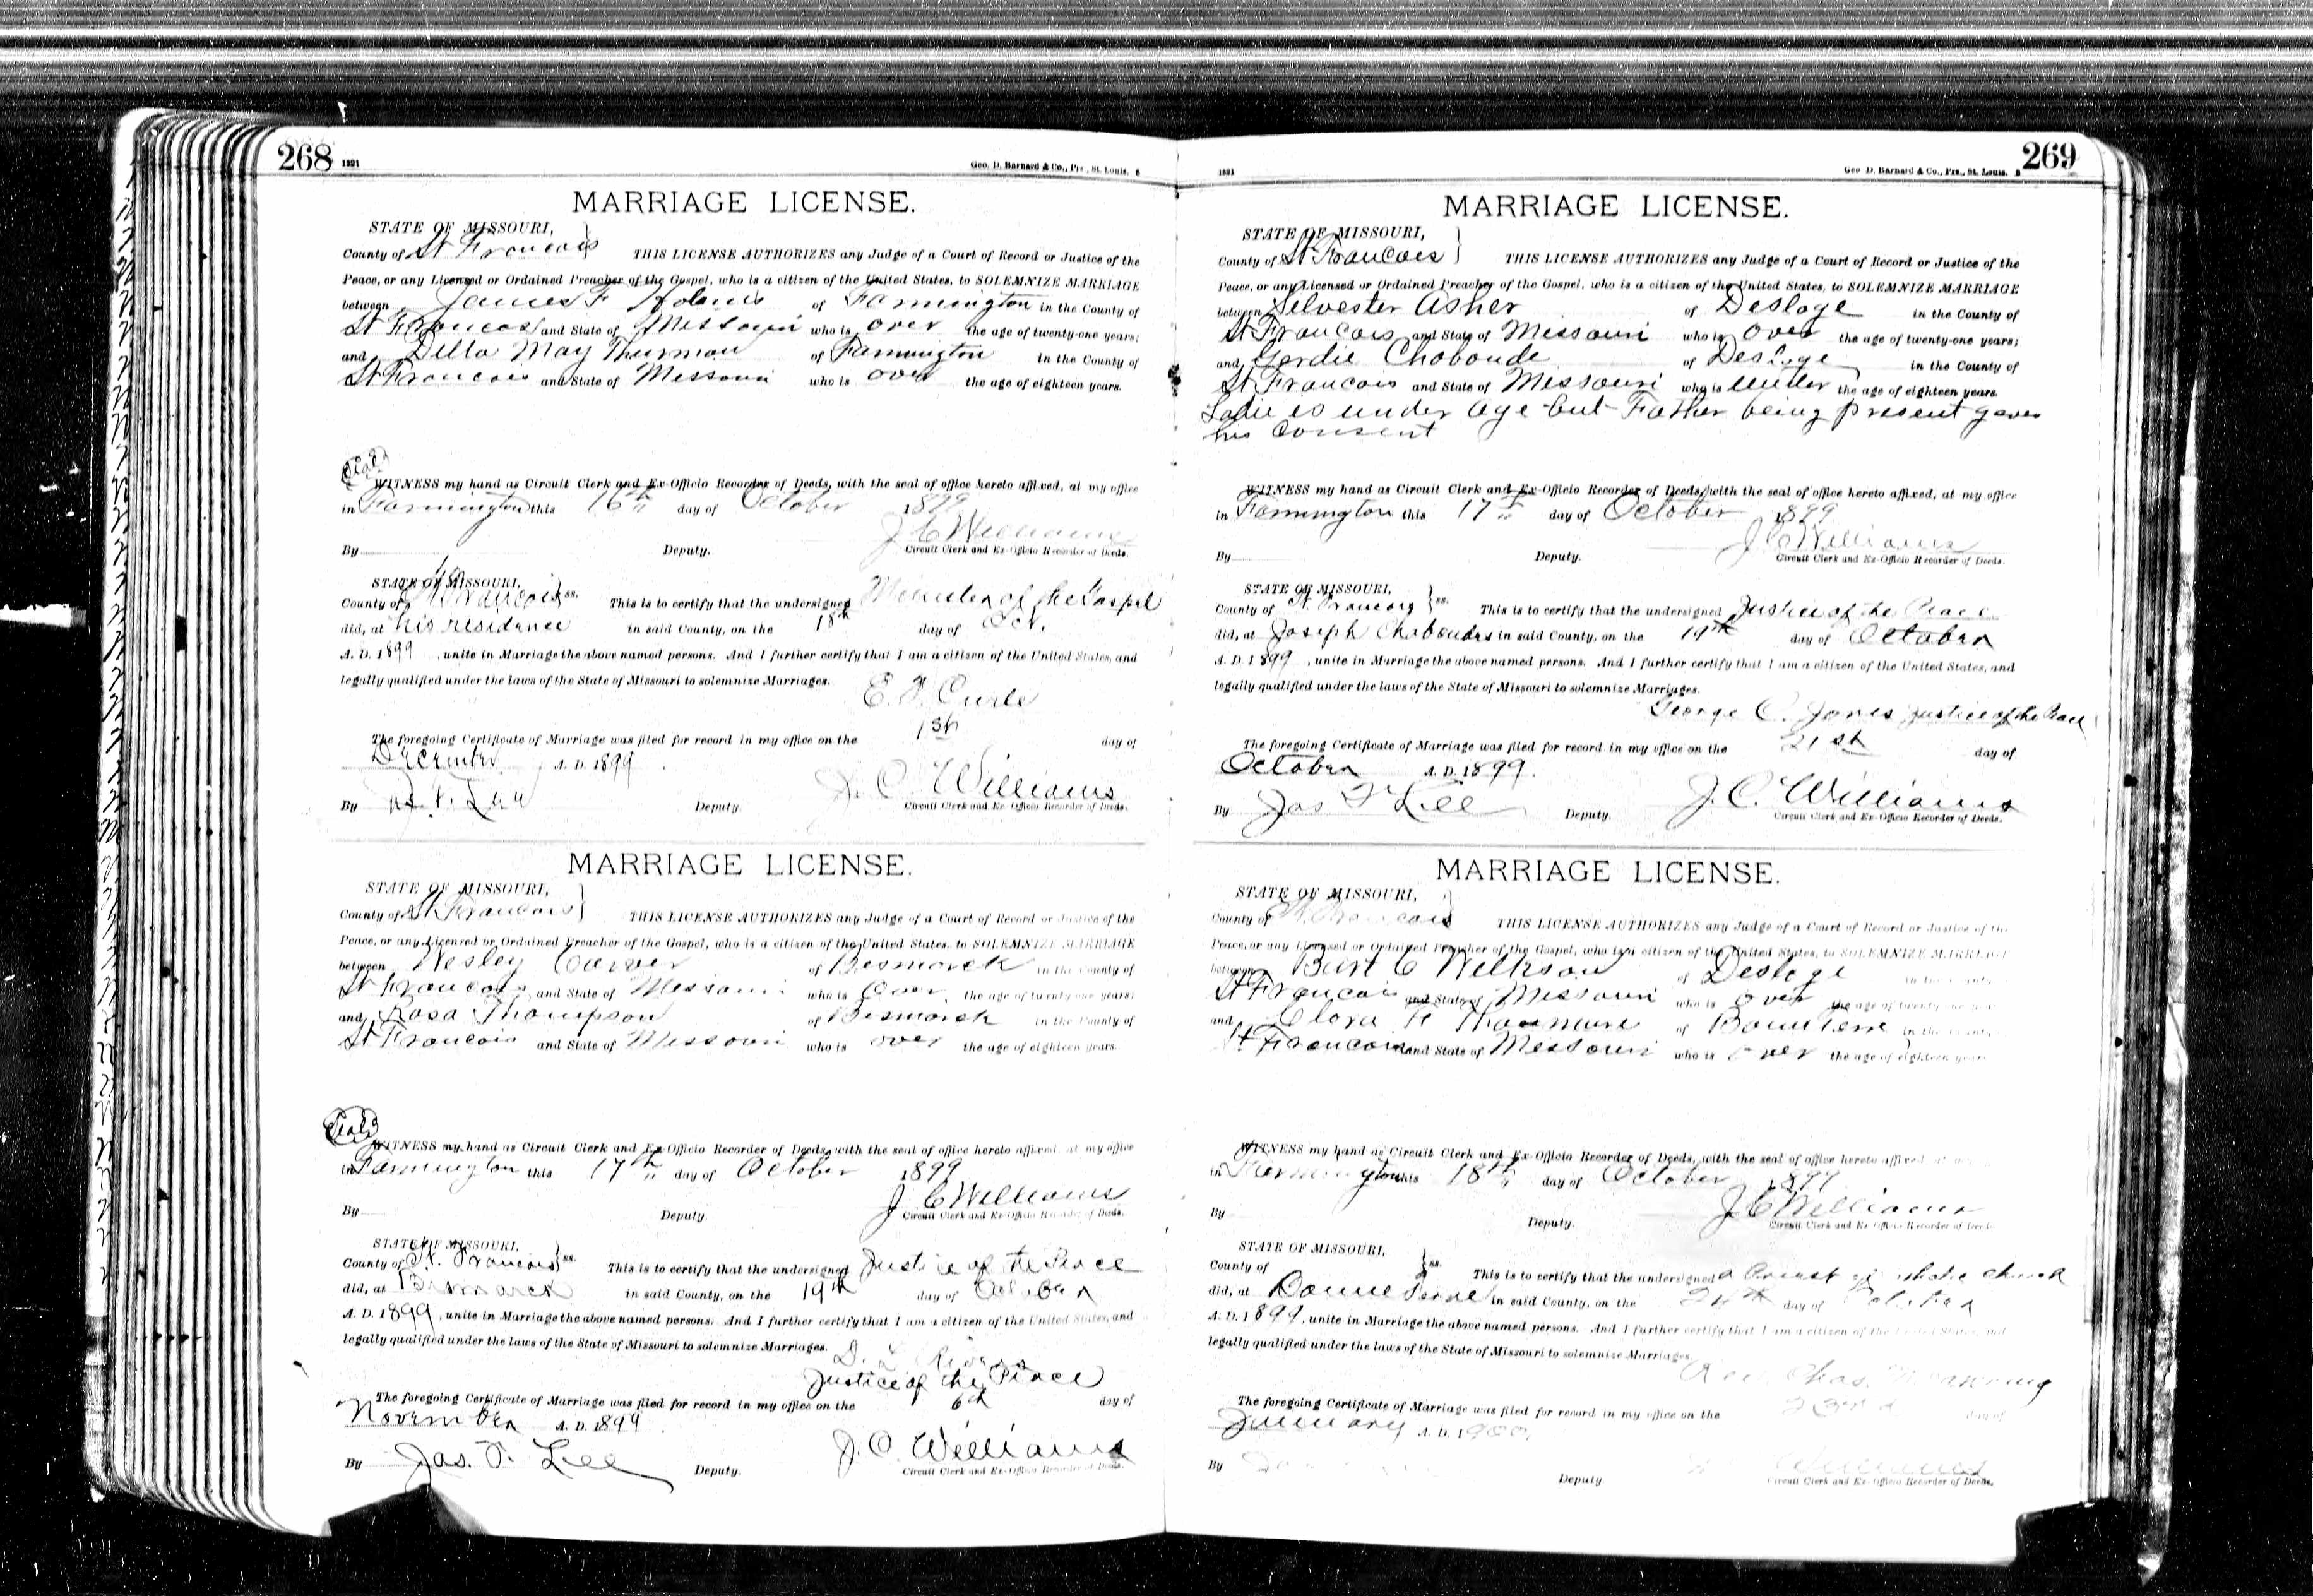 268 1821 Geo. D. Barnard & Co., Prs., St. Louis. B
MARRIAGE LICENSE.
STATE OF MISSOURI,
County of St Francois } THIS LICENSE AUTHORIZES any Judge of a Court of Record or Justice of the
Peace, or any Licensed or Ordained Preacher of the Gospel, who is a citizen of the United States, to SOLEMNIZE MARRIAGE
between James F of Farmington in the County of
St Francois and State of Missouri who is over the age of twenty-one years;
and Della May Thurman of Farmington in the County of
St Francois and State of Missouri who is over the age of eighteen years.
Seal
WITNESS my hand as Circuit Clerk and Ex-Officio Recorder of Deeds, with the seal of office hereto affixed, at my office
in Farmington this 16th day of October 1899
J C Williams
By Deputy. Circuit Clerk and Ex-Officio Recorder of Deeds.
STATE OF MISSOURI,
County of St Francois } ss. This is to certify that the undersigned Minister of the Gospel
did, at his residence in said County, on the 18th day of Oct.
A. D. 1899, unite in Marriage the above named persons. And I further certify that I am a citizen of the United States, and
legally qualified under the laws of the State of Missouri to solemnize Marriages.
E. F. Curle
The foregoing Certificate of Marriage was filed for record in my office on the 1st day of
December A. D. 1899.
J. C. Williams
By Jas. F. Lee Deputy. Circuit Clerk and Ex-Officio Recorder of Deeds.
MARRIAGE LICENSE.
STATE OF MISSOURI,
County of St Francois } THIS LICENSE AUTHORIZES any Judge of a Court of Record or Justice of the
Peace, or any Licensed or Ordained Preacher of the Gospel, who is a citizen of the United States, to SOLEMNIZE MARRIAGE
between Wesley Carver of Bismarck in the County of
St Francois and State of Missouri who is Over the age of twenty-one years;
and Rosa Thompson of Bismarck in the County of
St Francois and State of Missouri who is over the age of eighteen years.
Seal
WITNESS my hand as Circuit Clerk and Ex-Officio Recorder of Deeds, with the seal of office hereto affixed, at my office
in Farmington this 17th day of October 1899
J C Williams
By Deputy. Circuit Clerk and Ex-Officio Recorder of Deeds.
STATE OF MISSOURI,
County of St. Francois } ss. This is to certify that the undersigned Justice of the Peace
did, at Bismarck in said County, on the 19th day of October
A. D. 1899, unite in Marriage the above named persons. And I further certify that I am a citizen of the United States, and
legally qualified under the laws of the State of Missouri to solemnize Marriages.
D. L.
Justice of the Peace
The foregoing Certificate of Marriage was filed for record in my office on the 6th day of
November A. D. 1899.
J. C. Williams
By Jas. F. Lee Deputy. Circuit Clerk and Ex-Officio Recorder of Deeds.
1821 Geo. D. Barnard & Co., Prs., St. Louis. B 269
MARRIAGE LICENSE.
STATE OF MISSOURI,
County of St Francois } THIS LICENSE AUTHORIZES any Judge of a Court of Record or Justice of the
Peace, or any Licensed or Ordained Preacher of the Gospel, who is a citizen of the United States, to SOLEMNIZE MARRIAGE
between Silvester Asher of Desloge in the County of
St Francois and State of Missouri who is over the age of twenty-one years;
and Gerdie Chaboude of Desloge in the County of
St Francois and State of Missouri who is under the age of eighteen years.
Ladie is under age but Father being present gives
his consent
WITNESS my hand as Circuit Clerk and Ex-Officio Recorder of Deeds, with the seal of office hereto affixed, at my office
in Farmington this 17th day of October 1899
J C Williams
By Deputy. Circuit Clerk and Ex-Officio Recorder of Deeds.
STATE OF MISSOURI,
County of St Francois } ss. This is to certify that the undersigned Justice of the Peace
did, at Joseph Chaboudes in said County, on the 19th day of October
A. D. 1899, unite in Marriage the above named persons. And I further certify that I am a citizen of the United States, and
legally qualified under the laws of the State of Missouri to solemnize Marriages.
George C. Jones Justice of the Peace
The foregoing Certificate of Marriage was filed for record in my office on the 21st day of
October A. D. 1899.
J. C. Williams
By Jas F Lee Deputy. Circuit Clerk and Ex-Officio Recorder of Deeds.
MARRIAGE LICENSE.
STATE OF MISSOURI,
County of St Francois THIS LICENSE AUTHORIZES any Judge of a Court of Record or Justice of the
Peace, or any Licensed or Ordained Preacher of the Gospel, who is a citizen of the United States, to SOLEMNIZE MARRIAGE
between Burt C Wilkson of Desloge in the County
St Francois and State of Missouri who is over the age of twenty-one years
and Clara of Bonne Terre in the County
St Francois and State of Missouri who is over the age of eighteen years
WITNESS my hand as Circuit Clerk and Ex-Officio Recorder of Deeds, with the seal of office hereto affixed at my
in Farmington this 18th day of October 1899
J C Williams
By Deputy. Circuit Clerk and Ex-Officio Recorder of Deeds
STATE OF MISSOURI,
County of } ss. This is to certify that the undersigned a Priest church
did, at Bonne Terre in said County, on the 24th day of October
A. D. 1899, unite in Marriage the above named persons. And I further certify that I am a citizen of the United States, and
legally qualified under the laws of the State of Missouri to solemnize Marriages.
Rev Chas.
The foregoing Certificate of Marriage was filed for record in my office on the 23rd day of
January A. D. 1900.
By Deputy Circuit Clerk and Ex-Officio Recorder of Deeds.